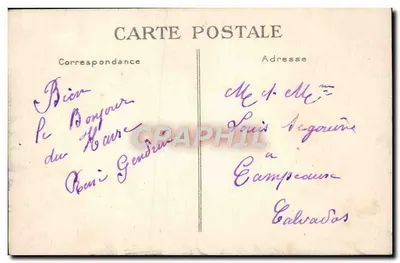 CARTE POSTALE
Correspondance
Bien
le Bonjour
du Havre
René Gendrin
Adresse
M. & Mme
Louis
a
Campeaux
Calvados
CPAPHIL